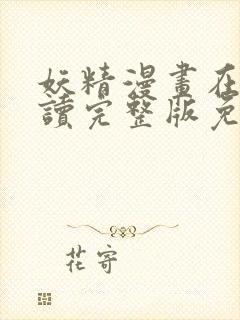 妖精漫畫在
讀完整版免
花寄